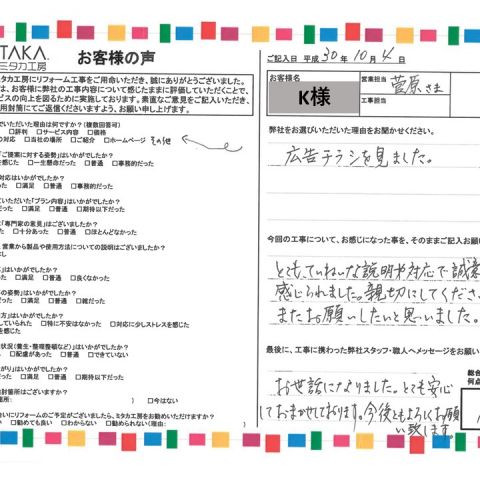 TAKA
ミタカ工房
お客様の声
ミタカ工房にリフォーム工事をご用命いただき、誠にありがとうございました。
は、お客様に弊社の工事内容について感じたままに評価していただくことで、
ビスの向上を図るために実施しております。素直なご意見をご記入いただき、
用封筒にてご返信くださいますよう、お願いいたします。
ていただいた理由は何ですか？（複数回答可）
□評判 □サービス内容 □価格
の対応 □当社の場所 □ご紹介 □ホームページ その他
「ご提案に対する姿勢」はいかがでしたか？
を感じた □一生懸命だった □普通 □事務的だった
対応はいかがでしたか？
た □満足 □普通 □事務的だった
ていただいた「プラン内容」はいかがでしたか？
た □満足 □普通 □期待以下だった
は「専門家の意見」はございましたか？
た □十分あった □普通 □ほとんどなかった
営業から製品や使用方法についての説明はございましたか？
なし
」はいかがでしたか？
た □満足 □普通 □良くなかった
の姿勢」はいかがでしたか？
た □満足 □普通 □雑だった
方」はいかがでしたか？
していられた □特に不安はなかった □対応に少しストレスを感じた
を感じた
状況（養生・整理整頓など）」はいかがでしたか？
□配慮があった □普通 □できていない
がり」はいかがでしたか？
た □満足 □普通 □期待以下だった
対箇所はございますか？
箇所： ） □今はない
合いにリフォームのご予定がございましたら、ミタカ工房をお勧めいただけますか？
□勧めても良い □わからない □勧められない（理由：
ご記入日 平成 30年 10月 4日
お客様名
K様
営業担当 菅原さま
工事担当
弊社をお選びいただいた理由をお聞かせください。
広告チラシを見ました。
今回の工事について、お感じになった事を、そのままご記入お願い
とてもていねいな説明や対応で誠意
感じられました。親切にしてくださ
またお願いしたいと思いました。
最後に、工事に携わった弊社スタッフ・職人へメッセージをお願い
総合
何点
お世話になりました。とても安心
しておまかせしております。今後ともよろしくお願
い致します。